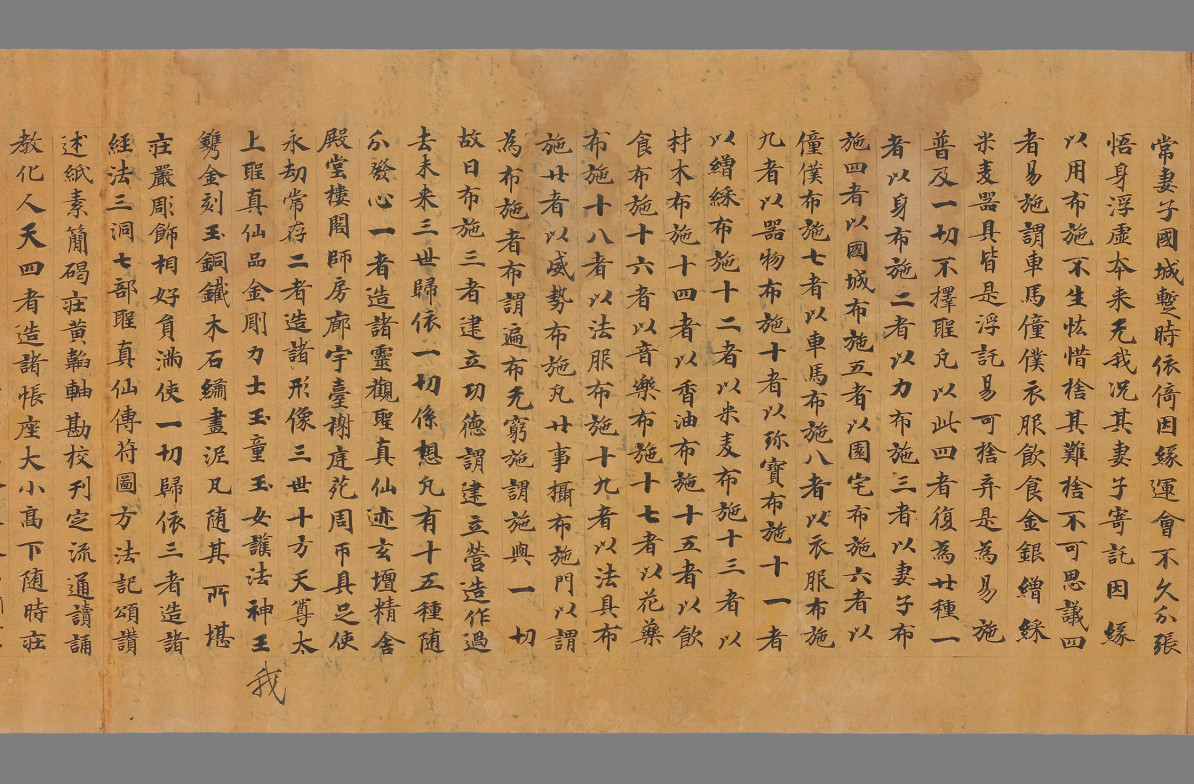 常妻子國城蹔時依倚因緣運會不久分張
悟身浮虛本来无我况其妻子寄託因緣
以用布施不生怯惜捨其難捨不可思議四
者易施謂車馬僮僕衣服飲食金銀繒綵
米麦器具皆是浮託易可捨弃是為易施
普及一切不擇聖凡以此四者復為廿種一
者以身布施二者以力布施三者以妻子布
施四者以國城布施五者以園宅布施六者以
僮僕布施七者以車馬布施八者以衣服布施
九者以器物布施十者以珎寶布施十一者
以繒綵布施十二者以米麦布施十三者以
材木布施十四者以香油布施十五者以飲
食布施十六者以音樂布施十七者以花藥
布施十八者以法服布施十九者以法具布
施廿者以威勢布施凡廿事攝布施門以謂
為布施者布謂遍布无窮施謂施與一切
故曰布施三者建立功德謂建立營造作過
去未来三世歸依一切係想凡有十五種随
分發心一者造諸靈觀聖真仙迹玄壇精舍
殿堂樓閣師房廊宇臺榭庭苑周帀具足使
永劫常存二者造諸形像三世十方天尊太
上聖真仙品金剛力士玉童玉女護法神王
我
鐫金刻玉銅鐵木石繡畫泥凡随其所堪
莊嚴彫飾相好負滿使一切歸依三者造諸
經法三洞七部聖真仙傳符圖方法記頌讚
述紙素簡碣莊黄軸勘校刊定流通讀誦
教化人天四者造諸帳座大小高下随時莊